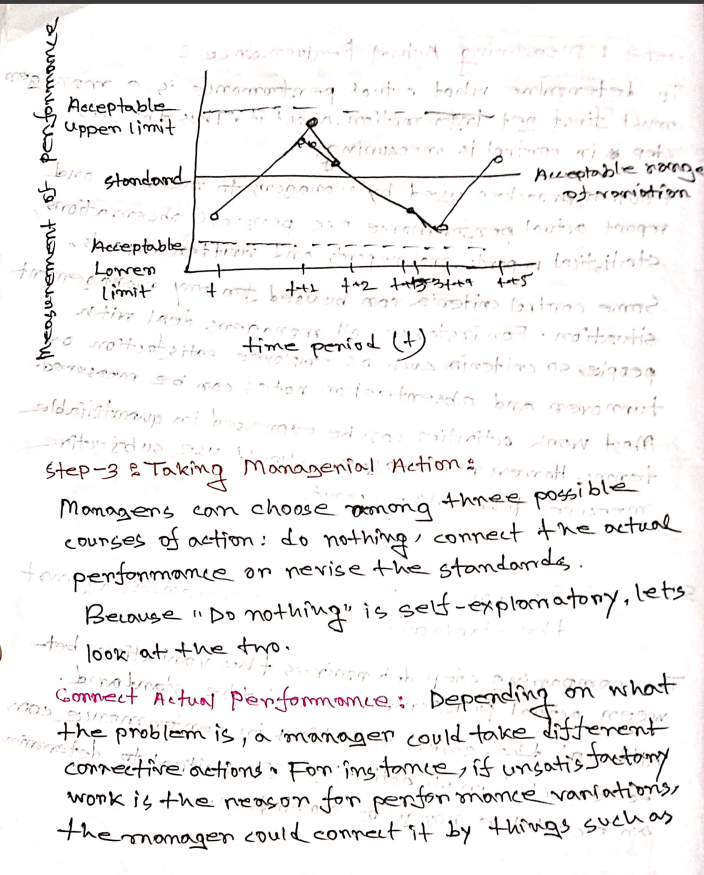 Measurement of performance
Acceptable
upper limit
standard
Acceptable range
of variation
Acceptable
Lower
limit
t t+1 t+2 t+4 t+5
time period (t)
Step-3 : Taking Managerial Action :
Managers can choose among three possible
courses of action : do nothing, correct the actual
performance or revise the standards.
Because "Do nothing" is self-explanatory, let's
look at the two.
Correct Actual Performance : Depending on what
the problem is, a manager could take different
corrective actions. For instance, if unsatisfactory
work is the reason for performance variations,
the manager could correct it by things such as